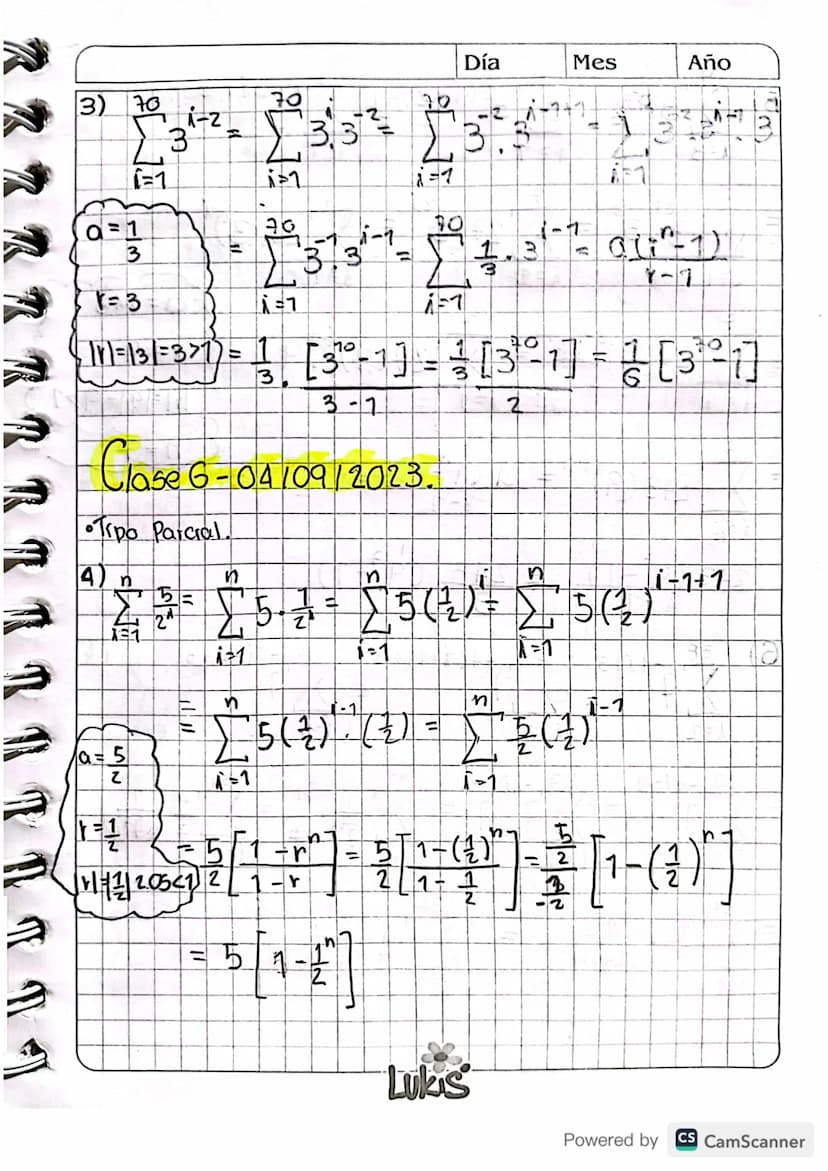 Día Mes Año
3) \sum_{i=1}^{70} 3^{i-2} = \sum_{i=1}^{70} 3^{i} \cdot 3^{-2} = \sum_{i=1}^{70} 3^{-2} \cdot 3^{i-1+1} = \sum_{i=1} 3^{-2} \cdot 3^{i-1} \cdot 3^{1}
a = \frac{1}{3}
= \sum_{i=1}^{70} 3^{-1} \cdot 3^{i-1} = \sum_{i=1}^{70} \frac{1}{3} \cdot 3^{i-1} = \frac{a(r^{n}-1)}{r-1}
r = 3
|r|=|3|=3>1
= \frac{1}{3} \cdot \frac{[3^{70}-1]}{3-1} = \frac{1}{3} \frac{[3^{70}-1]}{2} = \frac{1}{6} [3^{70}-1]
Clase 6 - 04/09/2023.
• Tipo Parcial.
4) \sum_{i=1}^{n} \frac{5}{2^{i}} = \sum_{i=1}^{n} 5 \cdot \frac{1}{2^{i}} = \sum_{i=1}^{n} 5(\frac{1}{2})^{i} = \sum_{i=1}^{n} 5(\frac{1}{2})^{i-1+1}
= \sum_{i=1}^{n} 5(\frac{1}{2})^{i-1} \cdot (\frac{1}{2}) = \sum_{i=1}^{n} \frac{5}{2}(\frac{1}{2})^{i-1}
a = \frac{5}{2}
r = \frac{1}{2}
= \frac{5}{2}[\frac{1-r^{n}}{1-r}] = \frac{5}{2}[\frac{1-(\frac{1}{2})^{n}}{1-\frac{1}{2}}] = \frac{\frac{5}{2}}{\frac{1}{2}}[1-(\frac{1}{2})^{n}]
= 5[1-\frac{1}{2}^{n}]
LUKIS
Powered by CS CamScanner